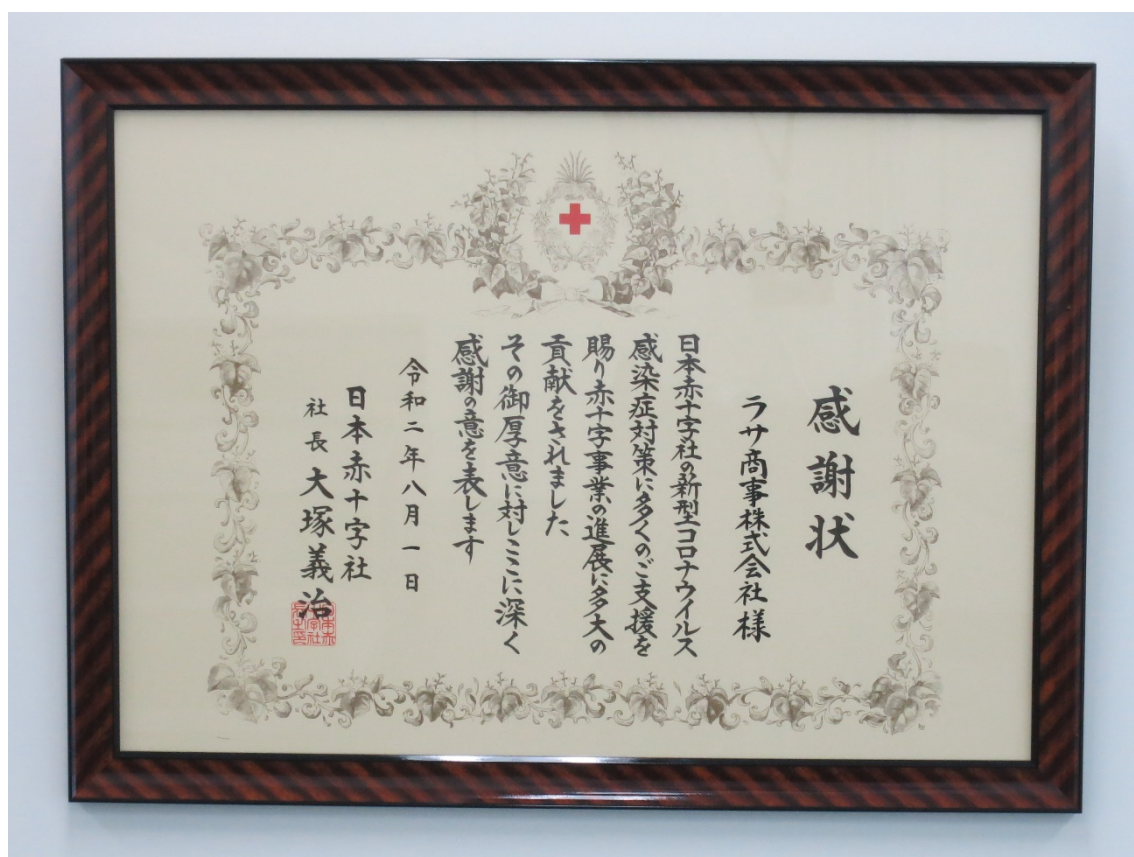 感謝状
ラサ商事株式会社様
日本赤十字社の新型コロナウイルス
感染症対策に多くのご支援を
賜り赤十字事業の進展に多大の
貢献をされました
その御厚意に対しここに深く
感謝の意を表します
令和二年八月一日
日本赤十字社
社長 大塚義治